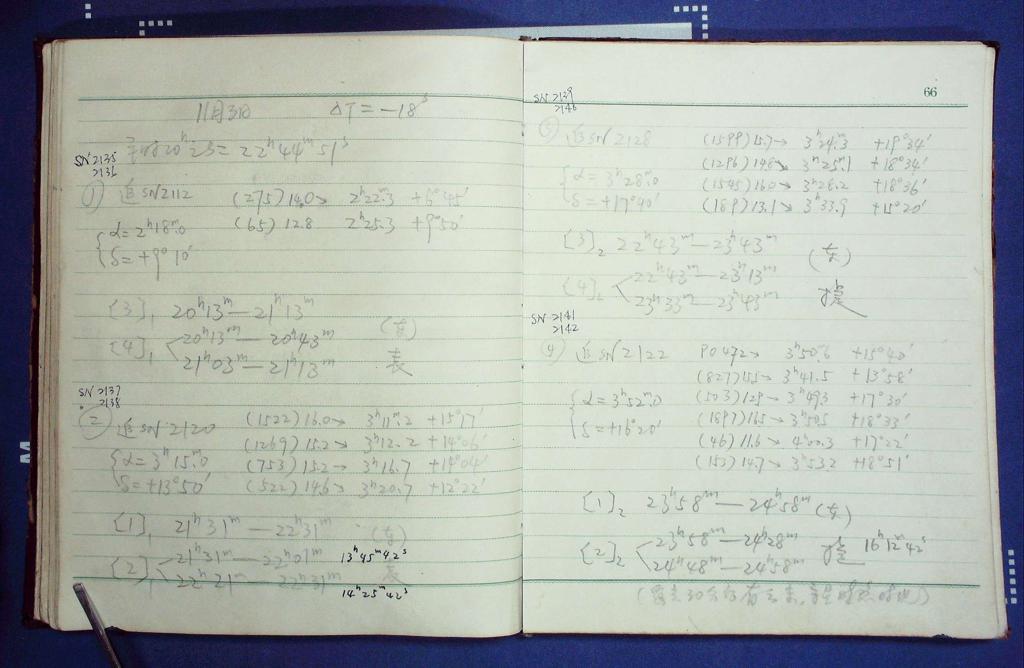 11月3日 ΔT = -18ˢ
20ʰ 22ʰ44ᵐ51ˢ
SN 2135
2136
① 追SN2112 (275) 14.0 2ʰ22ᵐ.3 +6°45′
α = 2ʰ18ᵐ.0 (65) 12.8 2ʰ25.3 +9°50′
δ = +9°10′
[3]₁ 20ʰ13ᵐ — 21ʰ13ᵐ
[4]₁ 20ʰ13ᵐ — 20ʰ43ᵐ
21ʰ03ᵐ — 21ʰ13ᵐ 表
SN 2137
2138
② 追SN2120 (1522) 16.0 3ʰ11ᵐ.2 +15°17′
(1269) 15.2 3ʰ12.2 +14°06′
α = 3ʰ15ᵐ.0 (753) 15.2 3ʰ16.7 +14°04′
δ = +13°50′ (522) 14.6 3ʰ20.7 +12°22′
[1]₁ 21ʰ31ᵐ — 22ʰ31ᵐ
[2]₁ 21ʰ31ᵐ — 22ʰ01ᵐ 13ʰ45ᵐ42ˢ
22ʰ21ᵐ — 22ʰ31ᵐ 表
14ʰ25ᵐ42ˢ
66
SN 2139
2140
③ 追SN2128 (1599) 15.7 3ʰ24ᵐ.3 +19°34′
(1296) 14.8 3ʰ25ᵐ.1 +18°34′
α = 3ʰ28ᵐ.0 (1545) 16.0 3ʰ28.2 +18°36′
δ = +17°40′ (189) 13.1 3ʰ33.9 +15°20′
[3]₂ 22ʰ43ᵐ — 23ʰ43ᵐ
[4]₂ 22ʰ43ᵐ — 23ʰ13ᵐ
23ʰ33ᵐ — 23ʰ43ᵐ
SN 2141
2142
④ 追SN2122 PO472 3ʰ50ᵐ.6 +15°40′
(827) 15.5 3ʰ41.5 +13°58′
α = 3ʰ52ᵐ.0 (503) 12.9 3ʰ49.3 +17°30′
δ = +16°20′ (1897) 16.5 3ʰ50.5 +18°33′
(46) 11.6 4ʰ00.3 +17°22′
(153) 14.7 3ʰ53.2 +18°51′
[1]₂ 23ʰ58ᵐ — 24ʰ58ᵐ
[2]₂ 23ʰ58ᵐ — 24ʰ28ᵐ 16ʰ12ᵐ42ˢ
24ʰ48ᵐ — 24ʰ58ᵐ